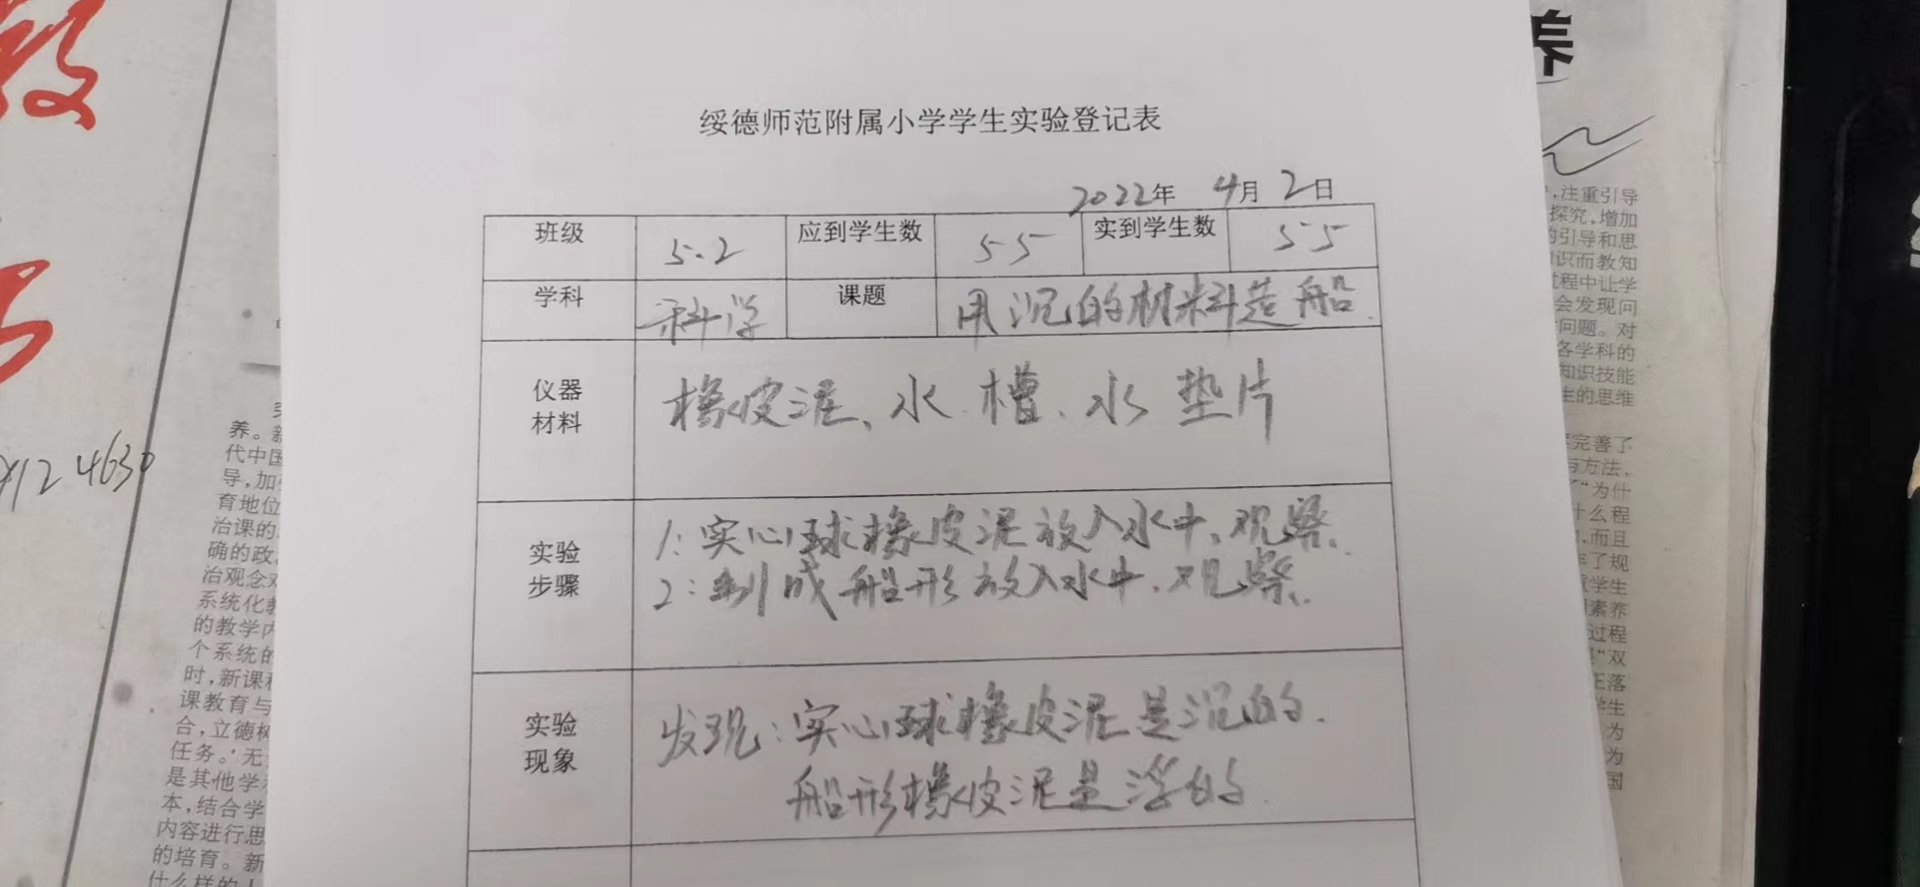 绥德师范附属小学学生实验登记表
2022年 4月 2日
班级 5.2 应到学生数 55 实到学生数 55
学科 科学 课题 用沉的材料造船
仪器材料 橡皮泥、水槽、水 垫片
实验步骤 1:实心球橡皮泥放入水中,观察.
2:制成船形放入水中,观察.
实验现象 发现:实心球橡皮泥是沉的.
船形橡皮泥是浮的.
养
,注重引导
探究,增加
的引导和思
识而教知
过程中让学
会发现问
问题。对
各学科的
知识技能
生的思维
完善了
与方法,
“为什
什么程
,而且
了规
学生
素养
过程
“双
落
学生
为
为
国
4630
养。新
代中国
导,加
育地位
治课的
确的政
治观念
系统化
的教学内
个系统的
时,新课
课教育与
合,立德树
任务。
是其他学
本,结合学
内容进行思
的培育。新
什么样的人